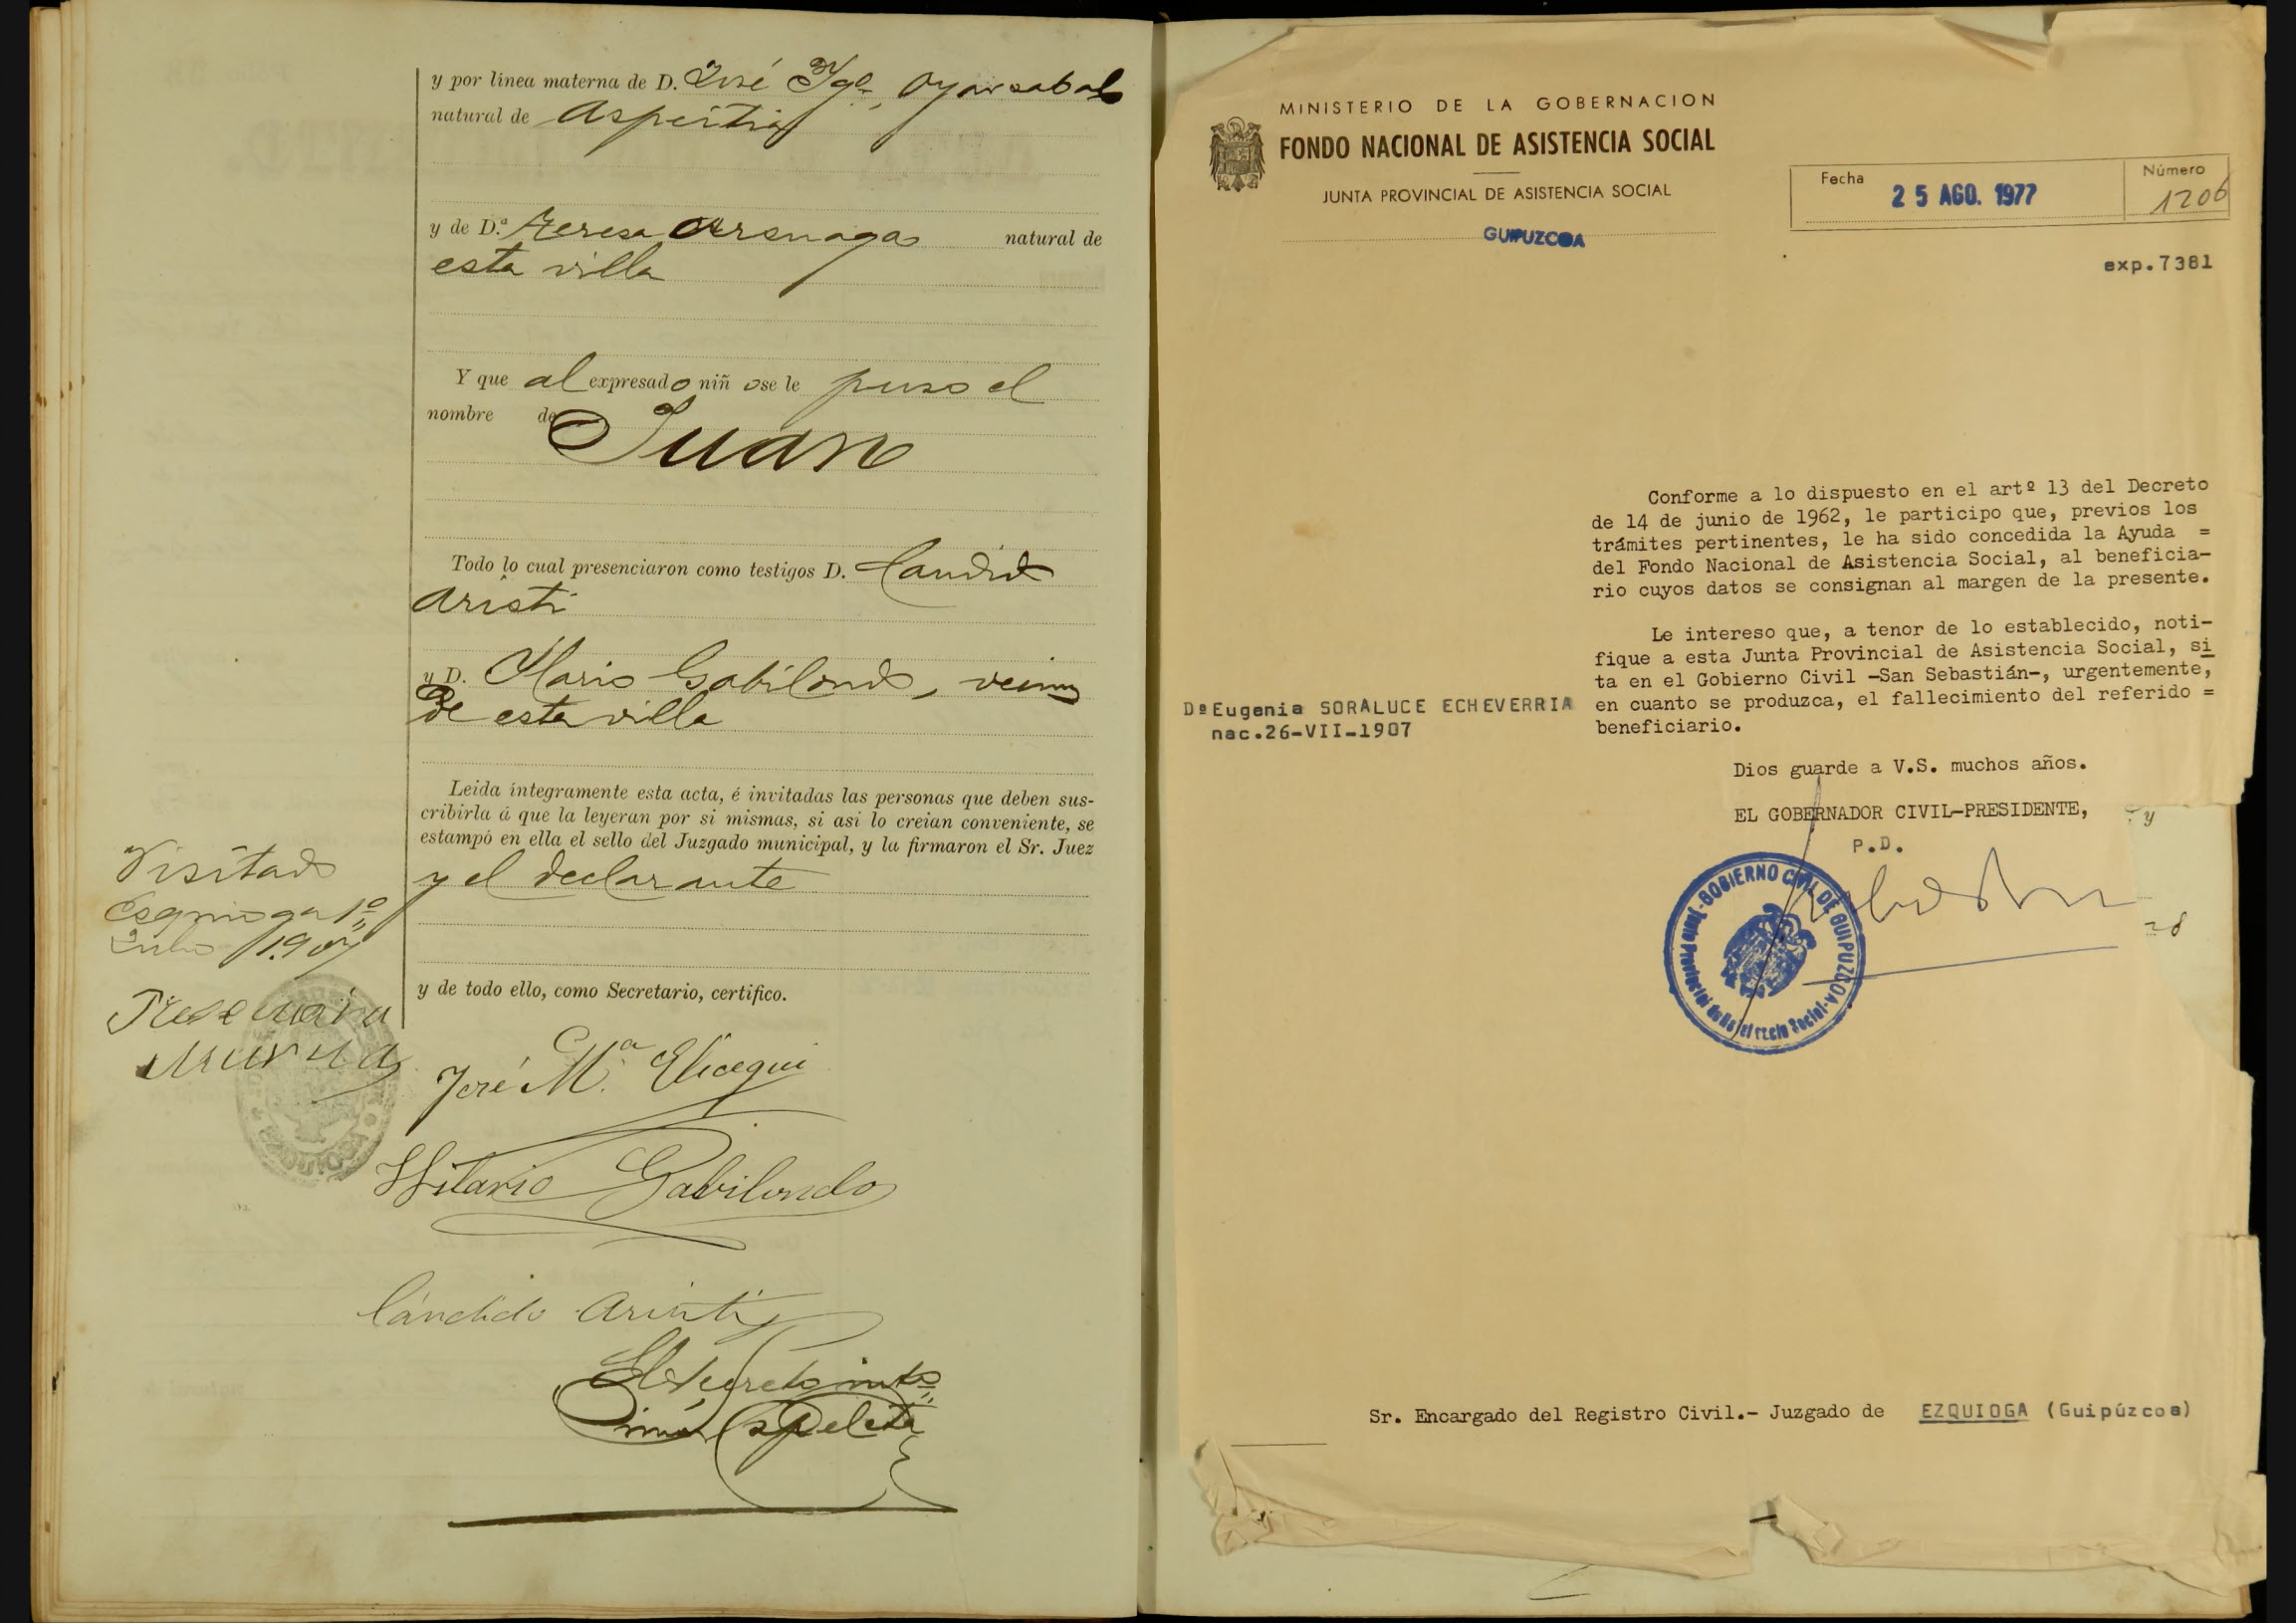 y por línea materna de D. José Igº. Oyarzabal
natural de Aspeitia
y de D.ª Teresa Arsuaga natural de
esta villa
Y que al expresado niñ o se le puso el
nombre de Juan
Todo lo cual presenciaron como testigos D. Candido
Aristi
y D. Ylario Gabilondo, vecinos
de esta villa
Leida íntegramente esta acta, é invitadas las personas que deben sus-
cribirla á que la leyeran por si mismas, si asi lo creian conveniente, se
estampó en ella el sello del Juzgado municipal, y la firmaron el Sr. Juez
y el declarante
y de todo ello, como Secretario, certifico.
Visitado
Esquioga 1º
Julio 1907
Murua
José Mª. Elicegui
Hilario Gabilondo
Cándido Aristi
El Secretº
MINISTERIO DE LA GOBERNACION
FONDO NACIONAL DE ASISTENCIA SOCIAL
JUNTA PROVINCIAL DE ASISTENCIA SOCIAL
GUIPUZCOA
Fecha 25 AGO. 1977
Número 1206
exp.7381
Conforme a lo dispuesto en el artº 13 del Decreto
de 14 de junio de 1962, le participo que, previos los
trámites pertinentes, le ha sido concedida la Ayuda =
del Fondo Nacional de Asistencia Social, al beneficia-
rio cuyos datos se consignan al margen de la presente.
Le intereso que, a tenor de lo establecido, noti-
fique a esta Junta Provincial de Asistencia Social, si
ta en el Gobierno Civil -San Sebastián-, urgentemente,
en cuanto se produzca, el fallecimiento del referido =
beneficiario.
Dª Eugenia SORALUCE ECHEVERRIA
nac.26-VII-1907
Dios guarde a V.S. muchos años.
EL GOBERNADOR CIVIL-PRESIDENTE,
y
P.D.
GOBIERNO CIVIL DE GUIPUZCOA
Junta Provincial de Asistencia Social
Sr. Encargado del Registro Civil.- Juzgado de EZQUIOGA (Guipúzcoa)